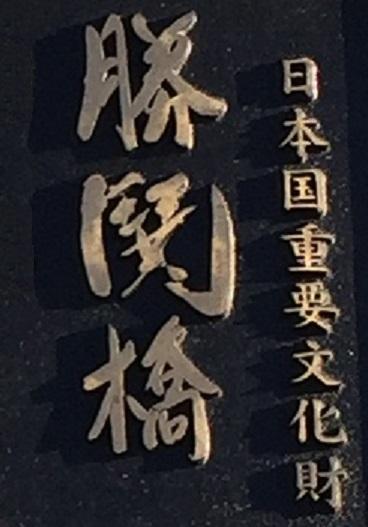 日本国重要文化財
勝鬨橋